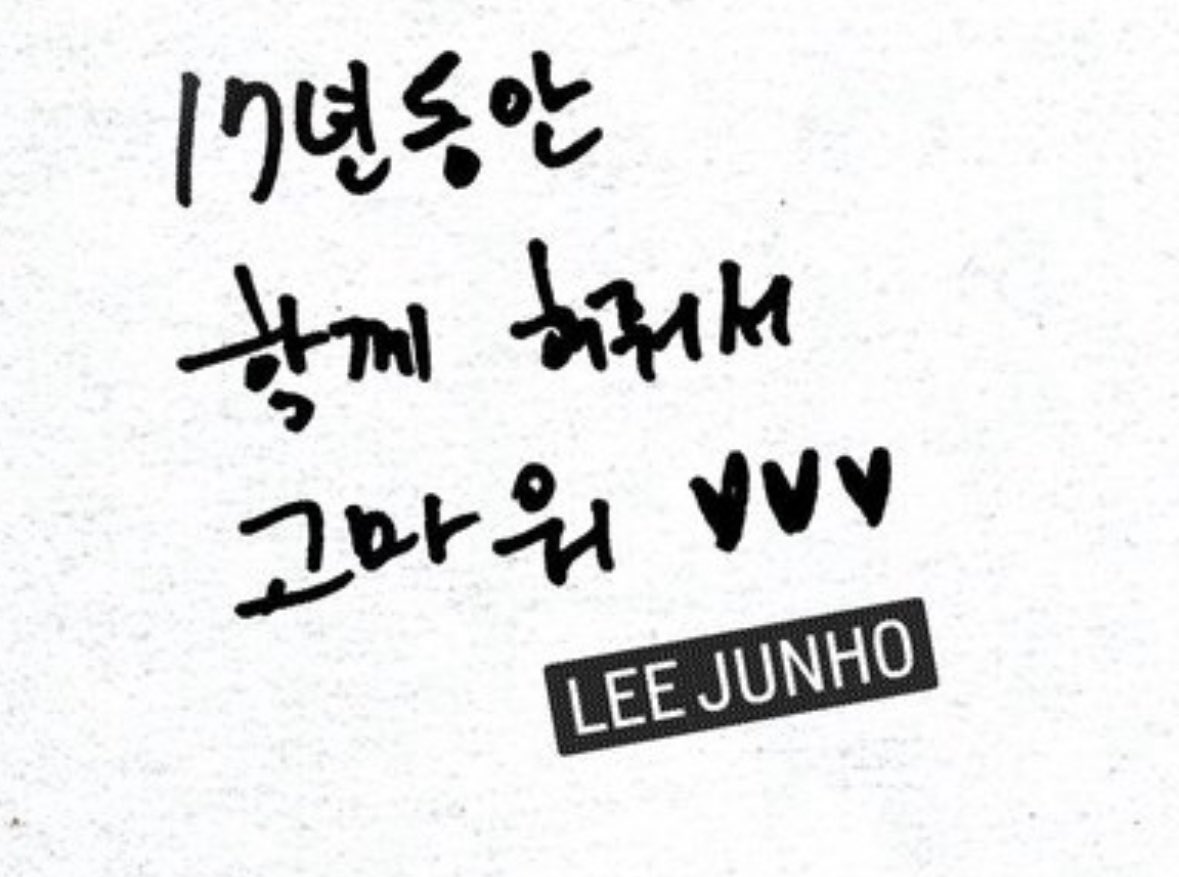 17년동안
함께 해줘서
고마워 ♥♥♥
LEE JUNHO